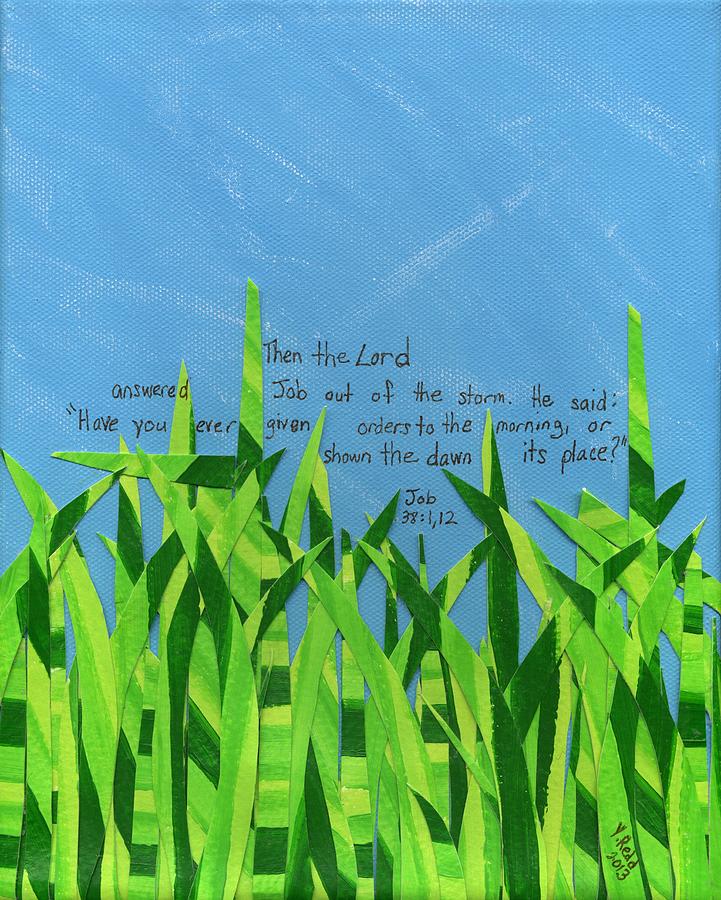 Then the Lord
answered Job out of the storm. He said:
"Have you ever given orders to the morning, or
shown the dawn its place?"
Job
38:1,12
Y. Read
2013